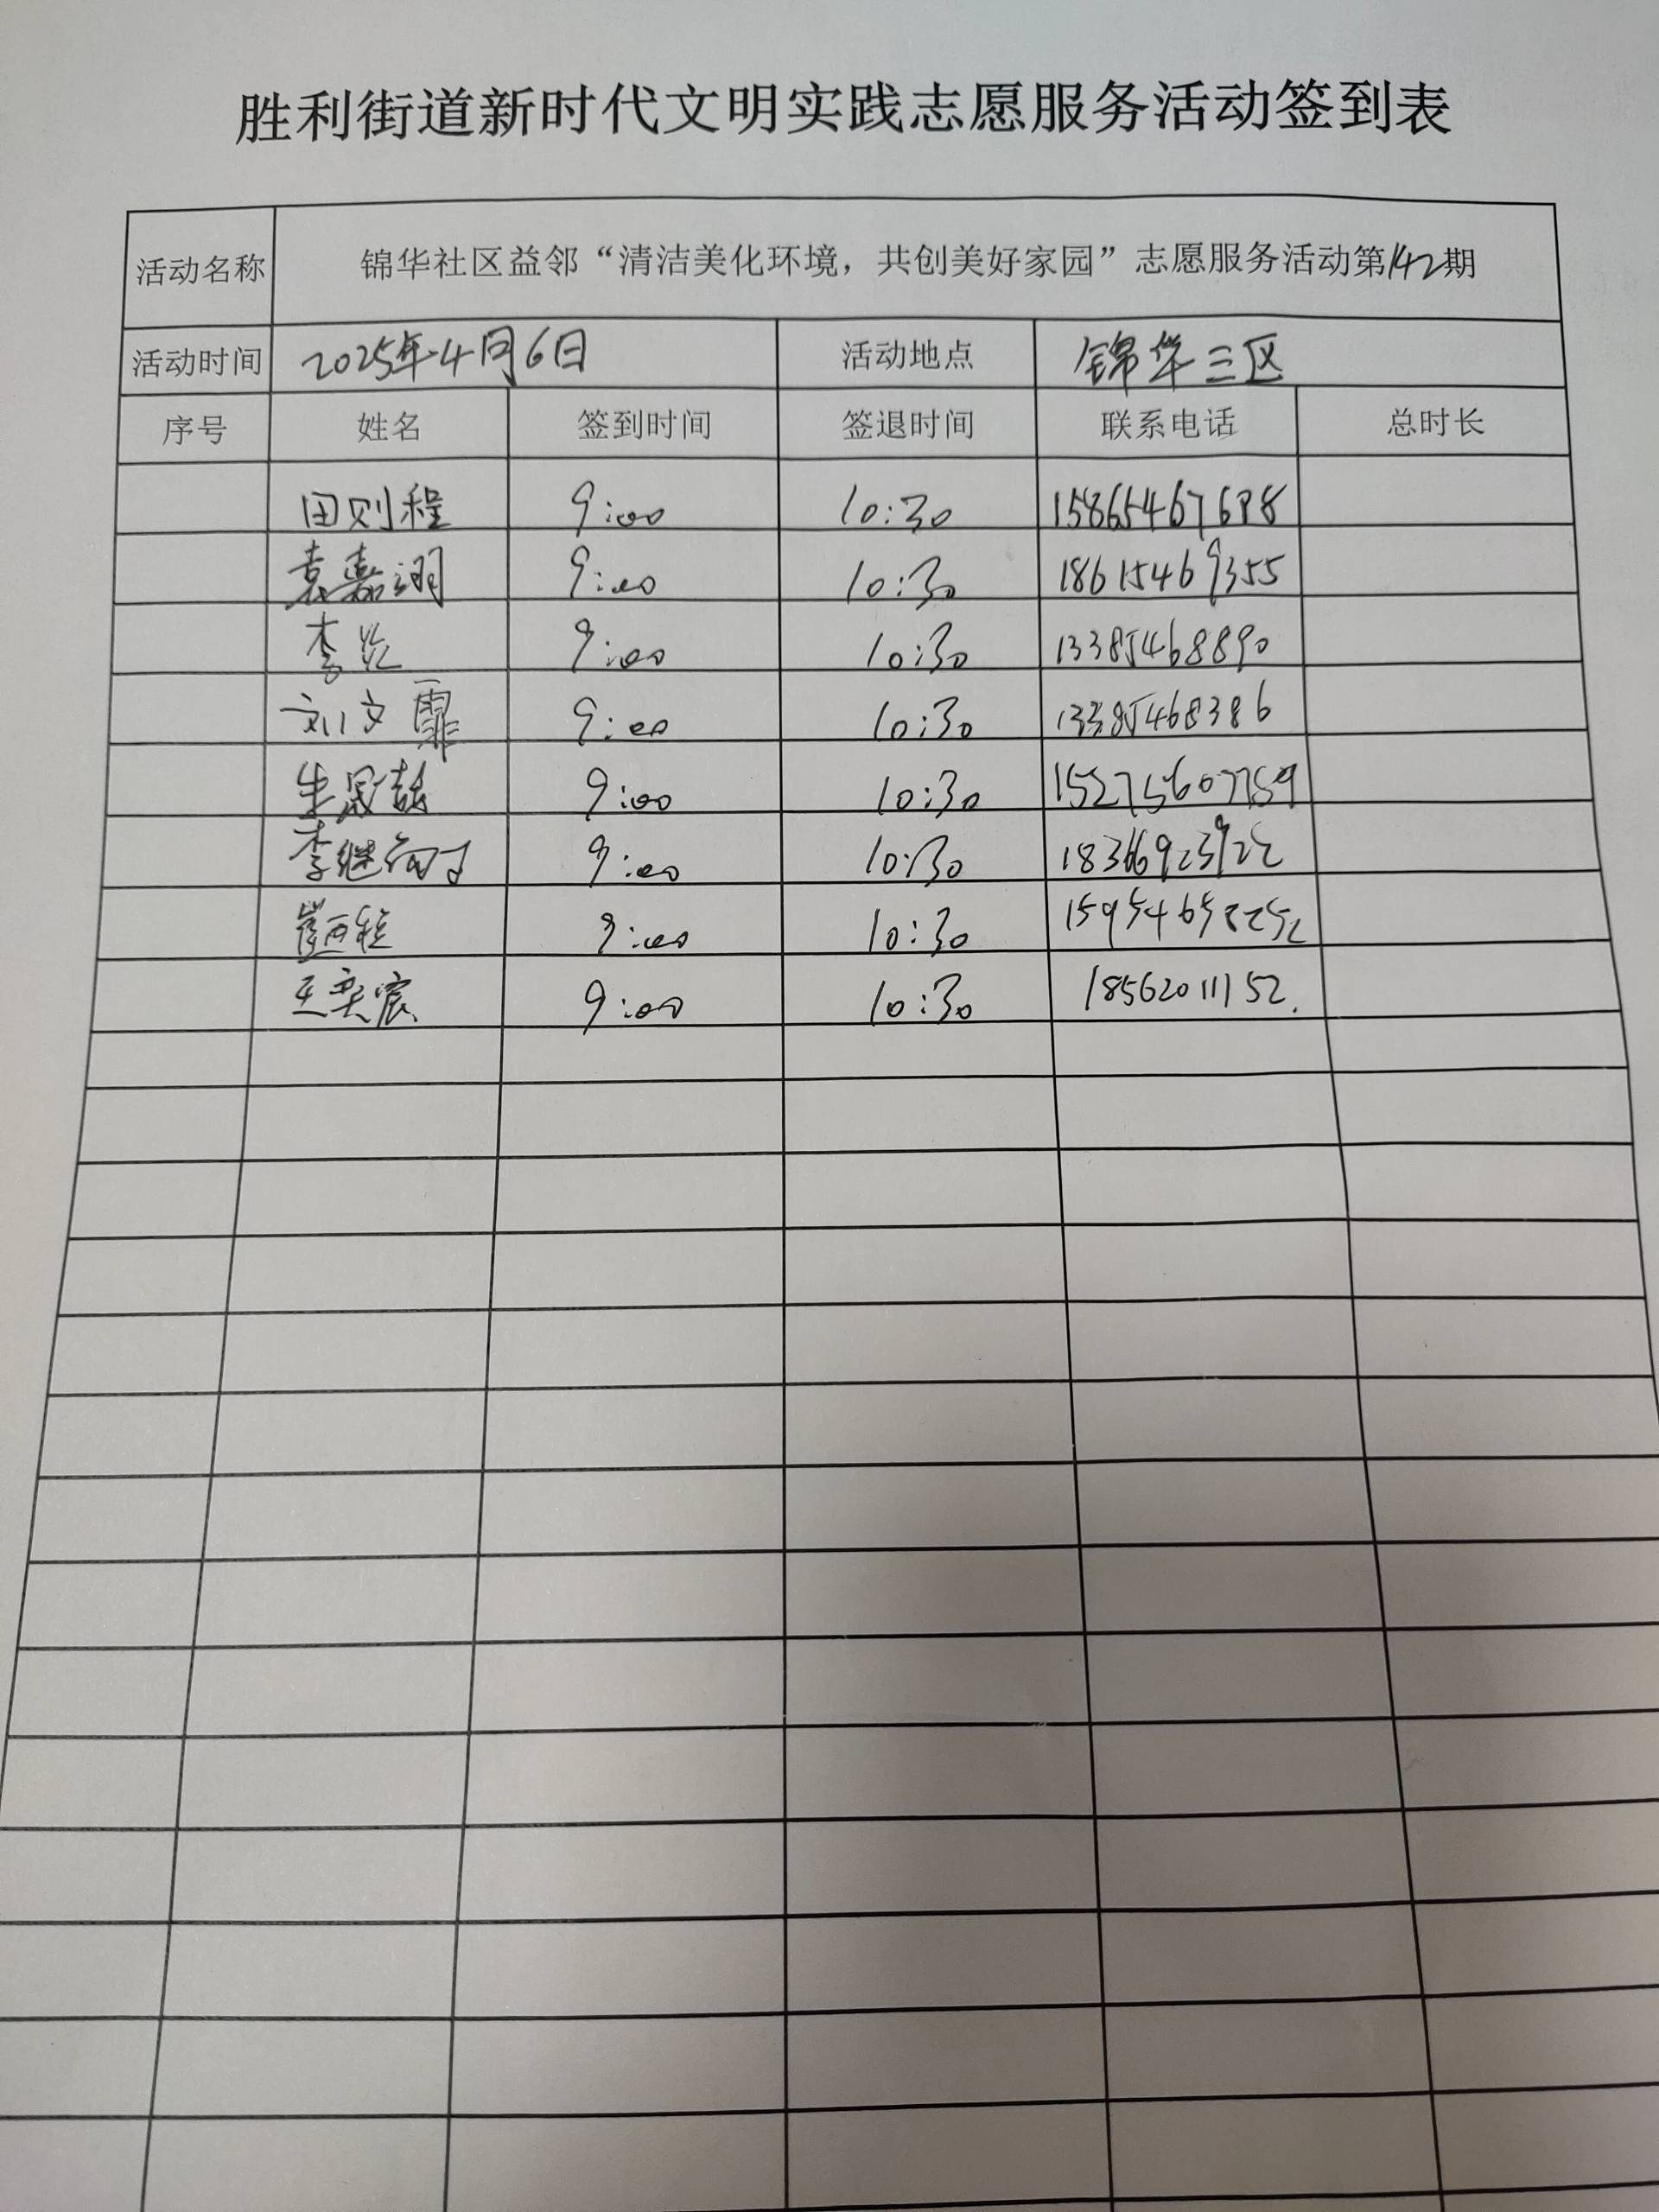 胜利街道新时代文明实践志愿服务活动签到表
活动名称 锦华社区益邻“清洁美化环境，共创美好家园”志愿服务活动第142期
活动时间 2025年4月6日 活动地点 锦华三区
序号 姓名 签到时间 签退时间 联系电话 总时长
田则程 9:00 10:30 15865467698
袁嘉翊 9:00 10:30 18615469355
李 9:00 10:30 13385468890
刘文霏 9:00 10:30 13385468386
朱晟喆 9:00 10:30
李继 9:00 10:30
崔西程 9:00 10:30
王奕宸 9:00 10:30 18562011152.